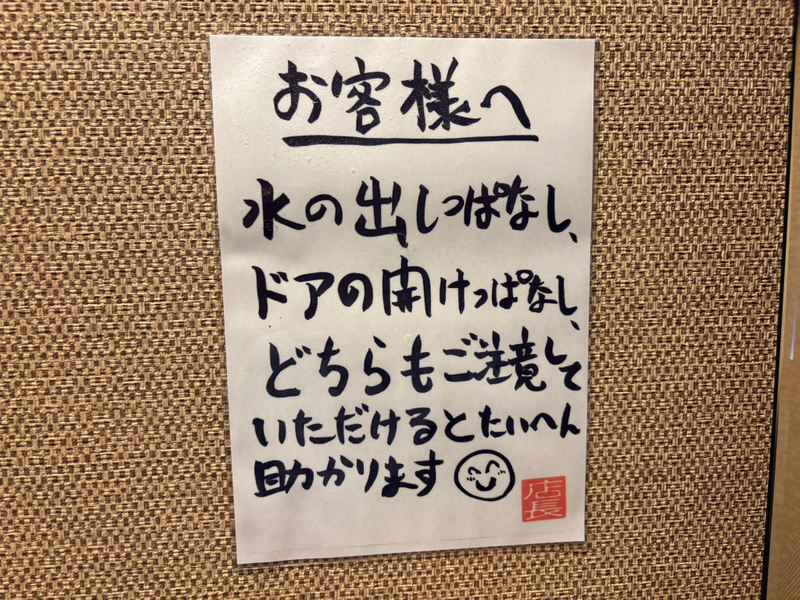 お客様へ
水の出しっぱなし、
ドアの開けっぱなし、
どちらもご注意して
いただけるとたいへん
助かります
店長